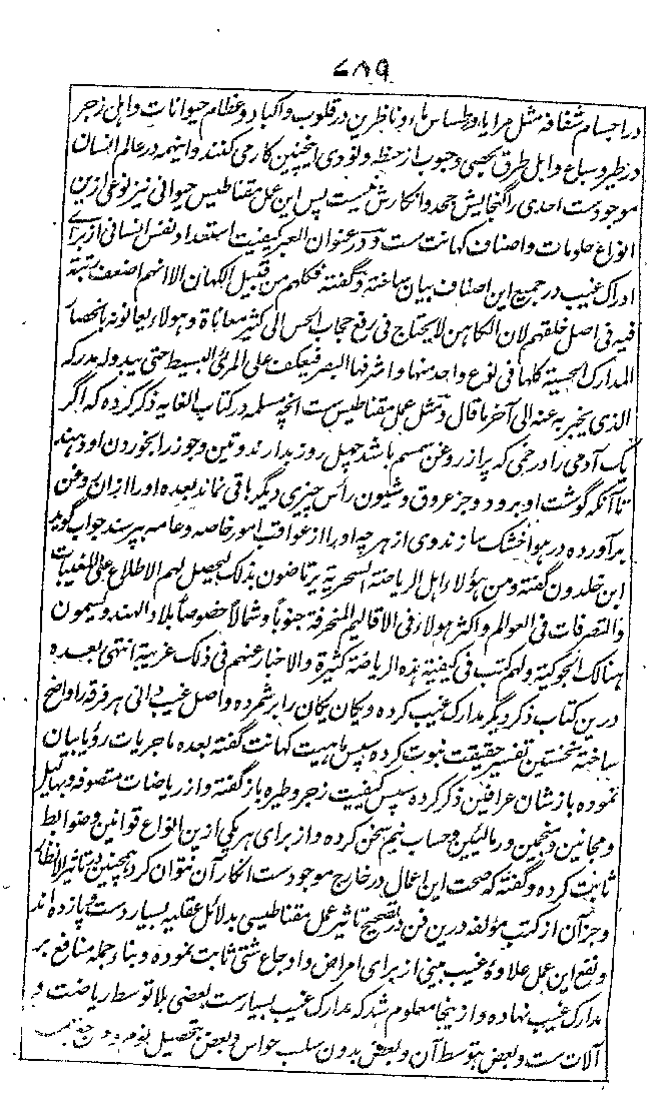 ٧٨٩
در اجسام شفافه مثل مرایا و طساس ماء و ناظرین در قلوب و اکباد و عظام حیوانات و اهل زجر
در طیر و سباع و اهل طرق بحصی و حبوب از حنطه و نوی اینچنین کار می کنند و اینهمه در عالم انسان
موجودست احدی را گنجایش جحد و انکارش نیست پس این عمل مقناطیس حیوانی نیز نوعی ازین
انواع علومات و اصناف کهانت ست و در عنوان العبر کیفیت استعداد نفس انسانی از برای
ادراک غیب در جمیع این اصناف بیان ساخته و گفته فکلهم من قبیل الکهان الا انهم اضعف رتبة
فیه فی اصل خلقهم لان الکاهن لا یحتاج فی رفع حجاب الحس الی کثیر معاناة و هولاء یعانونه بانحصار
المدارک الحسیة کلها فی نوع واحد منها و اشرفها البصر فیعکف علی المرئی البسیط حتی یبدو له مدرکه
الذی یخبر به عنه الی آخر ما قال و مثل عمل مقناطیس ست انچه مسلمه در کتاب الغایه ذکر کرده که اگر
یک آدمی را در خمی که پر از روغن سمسم باشد چهل روز بدارند و تین و جوز را بخوردن او دهند
تا آنکه گوشت او برود و جز عروق و شیون رأس چیزی دیگر باقی نماند بعده او را ازان روغن
برآورده در هوا خشک سازند وی از هر چه او را از عواقب امور خاصه و عامه بپرسند جواب گوید
ابن خلدون گفته و من هؤلاء اهل الریاضة السحریة یرتاضون بذلک لیحصل لهم الاطلاع علی المغیبات
و التصرفات فی العوالم و اکثر هولاء فی الاقالیم المنحرفة جنوبا و شمالا خصوصا بلاد الهند و یسمون
هنالک الجوکیة و لهم کتب فی کیفیة هذه الریاضة کثیرة و الاخبار عنهم فی ذلک غریبة انتهی بعده
درین کتاب ذکر دیگر مدارک غیب کرده و یکان یکان را بر شمرده و اصل غیب دانی هر فرقه را واضح
ساخته نخستین تفسیر حقیقت نبوت کرده سپس ماهیت کهانت گفته بعده ماجریات رؤیا بیان
نموده باز شان عرافین ذکر کرده سپس کیفیت زجر و طیره باز گفته و از ریاضات متصوفه و بهالیل
و مجانین و منجمین و رمالین و حساب نیم سخن کرده و از برای هر یکی ازین انواع قوانین و ضوابط
ثابت کرده و گفته که صحت این اعمال در خارج موجودست انکار آن نتوان کرد همچنین در تاثیر الانظار
و جز آن از کتب مؤلفه درین فن در تصحیح تاثیر عمل مقناطیسی بدلائل عقلیه بسیار دست و پا زده اند
و نفع این عمل علاوه غیب بینی از برای امراض و اوجاع شتی ثابت نموده و بناء جمله منافع بر
مدارک غیب نهاده و از اینجا معلوم شد که مدارک غیب بسیارست بعضی بلا توسط ریاضت و
آلات ست و بعض بتوسط آن و بعض بدون سلب حواس و بعض بتحصیل